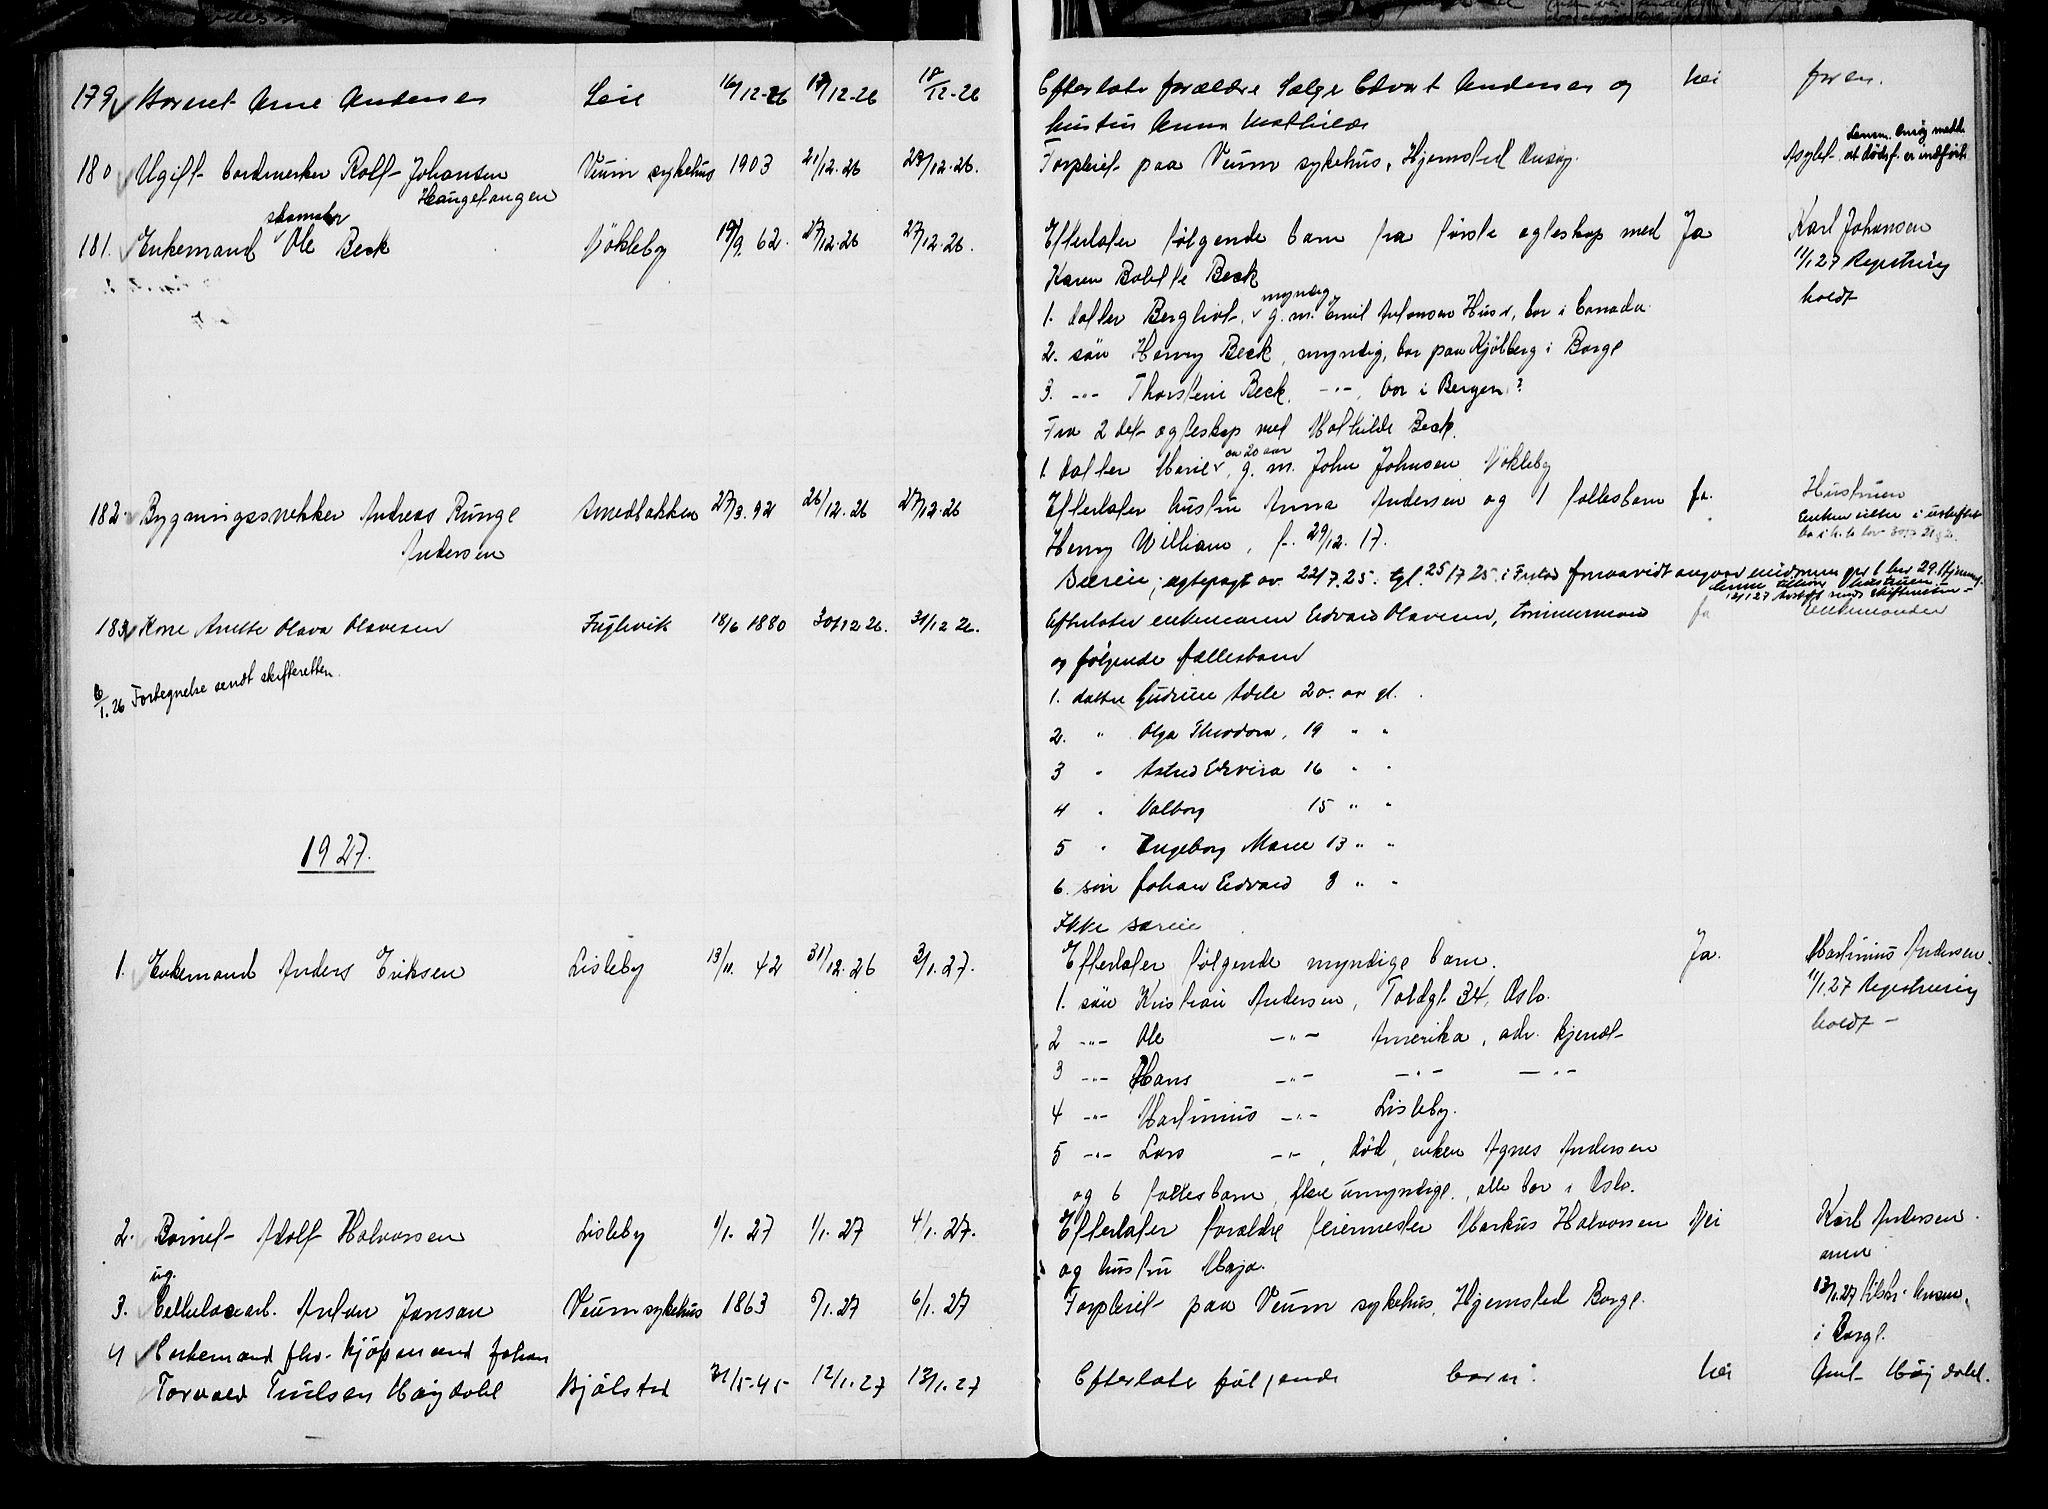 179 Barnet Arne Andersen Leie 16/12-26 17/12-26 18/12-26 Efterlater forældre Helge Edvart Andersen og nei faren.
hustru Anna Mathilde
180 Ugift bordmerker Rolf Johansen Veum sykehus 1903 21/12.26 22/12.26. Forpleiet paa Veum sykehus, Hjemsted Onsøy. Asylet
Haugetangen
181. Enkemand skomaker Ole Beck Nökleby 19/9. 62. 27/12.26 27/12.26. Efterlater følgende barn fra første egteskap med Ja Karl Johansen
Karen Bolette Beck 11/1 27 Registrering
1. datter Bergliot, myndig g. m. Emil Antonsen Huser, bor i Canada. holdt
2. søn Henry Beck, myndig, bor paa Kjølberg i Borge
3. -"- Thorstein Beck, -"-, bor i Bergen?
Fra 2det egteskap med Mathilde Beck.
1. datter Marie, ca 20 aar g. m. John Johnsen Nökleby
182 Bygningssnekker Andreas Runge Smedbakken 27/3. 92 26/12.26 27/12.26 Efterlater hustru Anna Andersen og 1 fællesbarn ja. Hustruen
Andersen Henry William, f. 29/12. 17. Enken sitter i uskiftet
Særeie, egtepagt av 22/7.25. tgl. 25/7 25. i Fr.stad forsaavidt angaar
183 Kone Anette Olava Olavesen Fuglevik 18/6 1880 30/12 26. 31/12 26. Efterlater enkemann Edvard Olavesen, tømmermand ja Enkemanden
og følgende fællesbarn
6/1. 26 Fortegnelse sendt skifteretten.
1. datter Gudrun Adele 20. aar gl.
2. " Olga Theodora, 19 " "
3 " Astrid Elvira 16 " "
4 " Valborg 15 " "
1927.
5 " Ingeborg Marie 13 " "
6. søn Johan Edvard 8 " "
Ikke særeie
1. Enkemand Anders Eriksen Lisleby 13/11. 42 31/12.26 3/1.27. Efterlater følgende myndige barn. Ja. Martinius Andersen.
1. søn Kristian Andersen, Toldgt 34, Oslo. 11/1 27 Registrering
2 -"- Ole -"- Amerika, adr. kjendt holdt -
3 -"- Hans -"- -"- -"-
4 -"- Martinius -"- Lisleby.
5 -"- Lars -"-, død, enken Agnes Andersen
og 6 fællesbarn, flere umyndige, alle bor i Oslo.
2. Barnet Adolf Halvorsen Lisleby 1/1. 27 1/1. 27 4/1. 27. Efterlater forældre feiermester Markus Halvorsen Nei Karl Andersen
og hustru Maja.
3. ug. Cellulosearb. Anton Jansen Veum sykehus 1863 5/1.27 6/1.27 Forpleiet paa Veum sykehus, Hjemsted Borge.
i Borge.
4 Enkemand fhv. kjøpmand Johan
Torvald Truelsen Møgdahl Kjølstad 31/5-45 12/1.27 13/1.27 Efterlater følgende barn: nei Ant. Møgdahl.